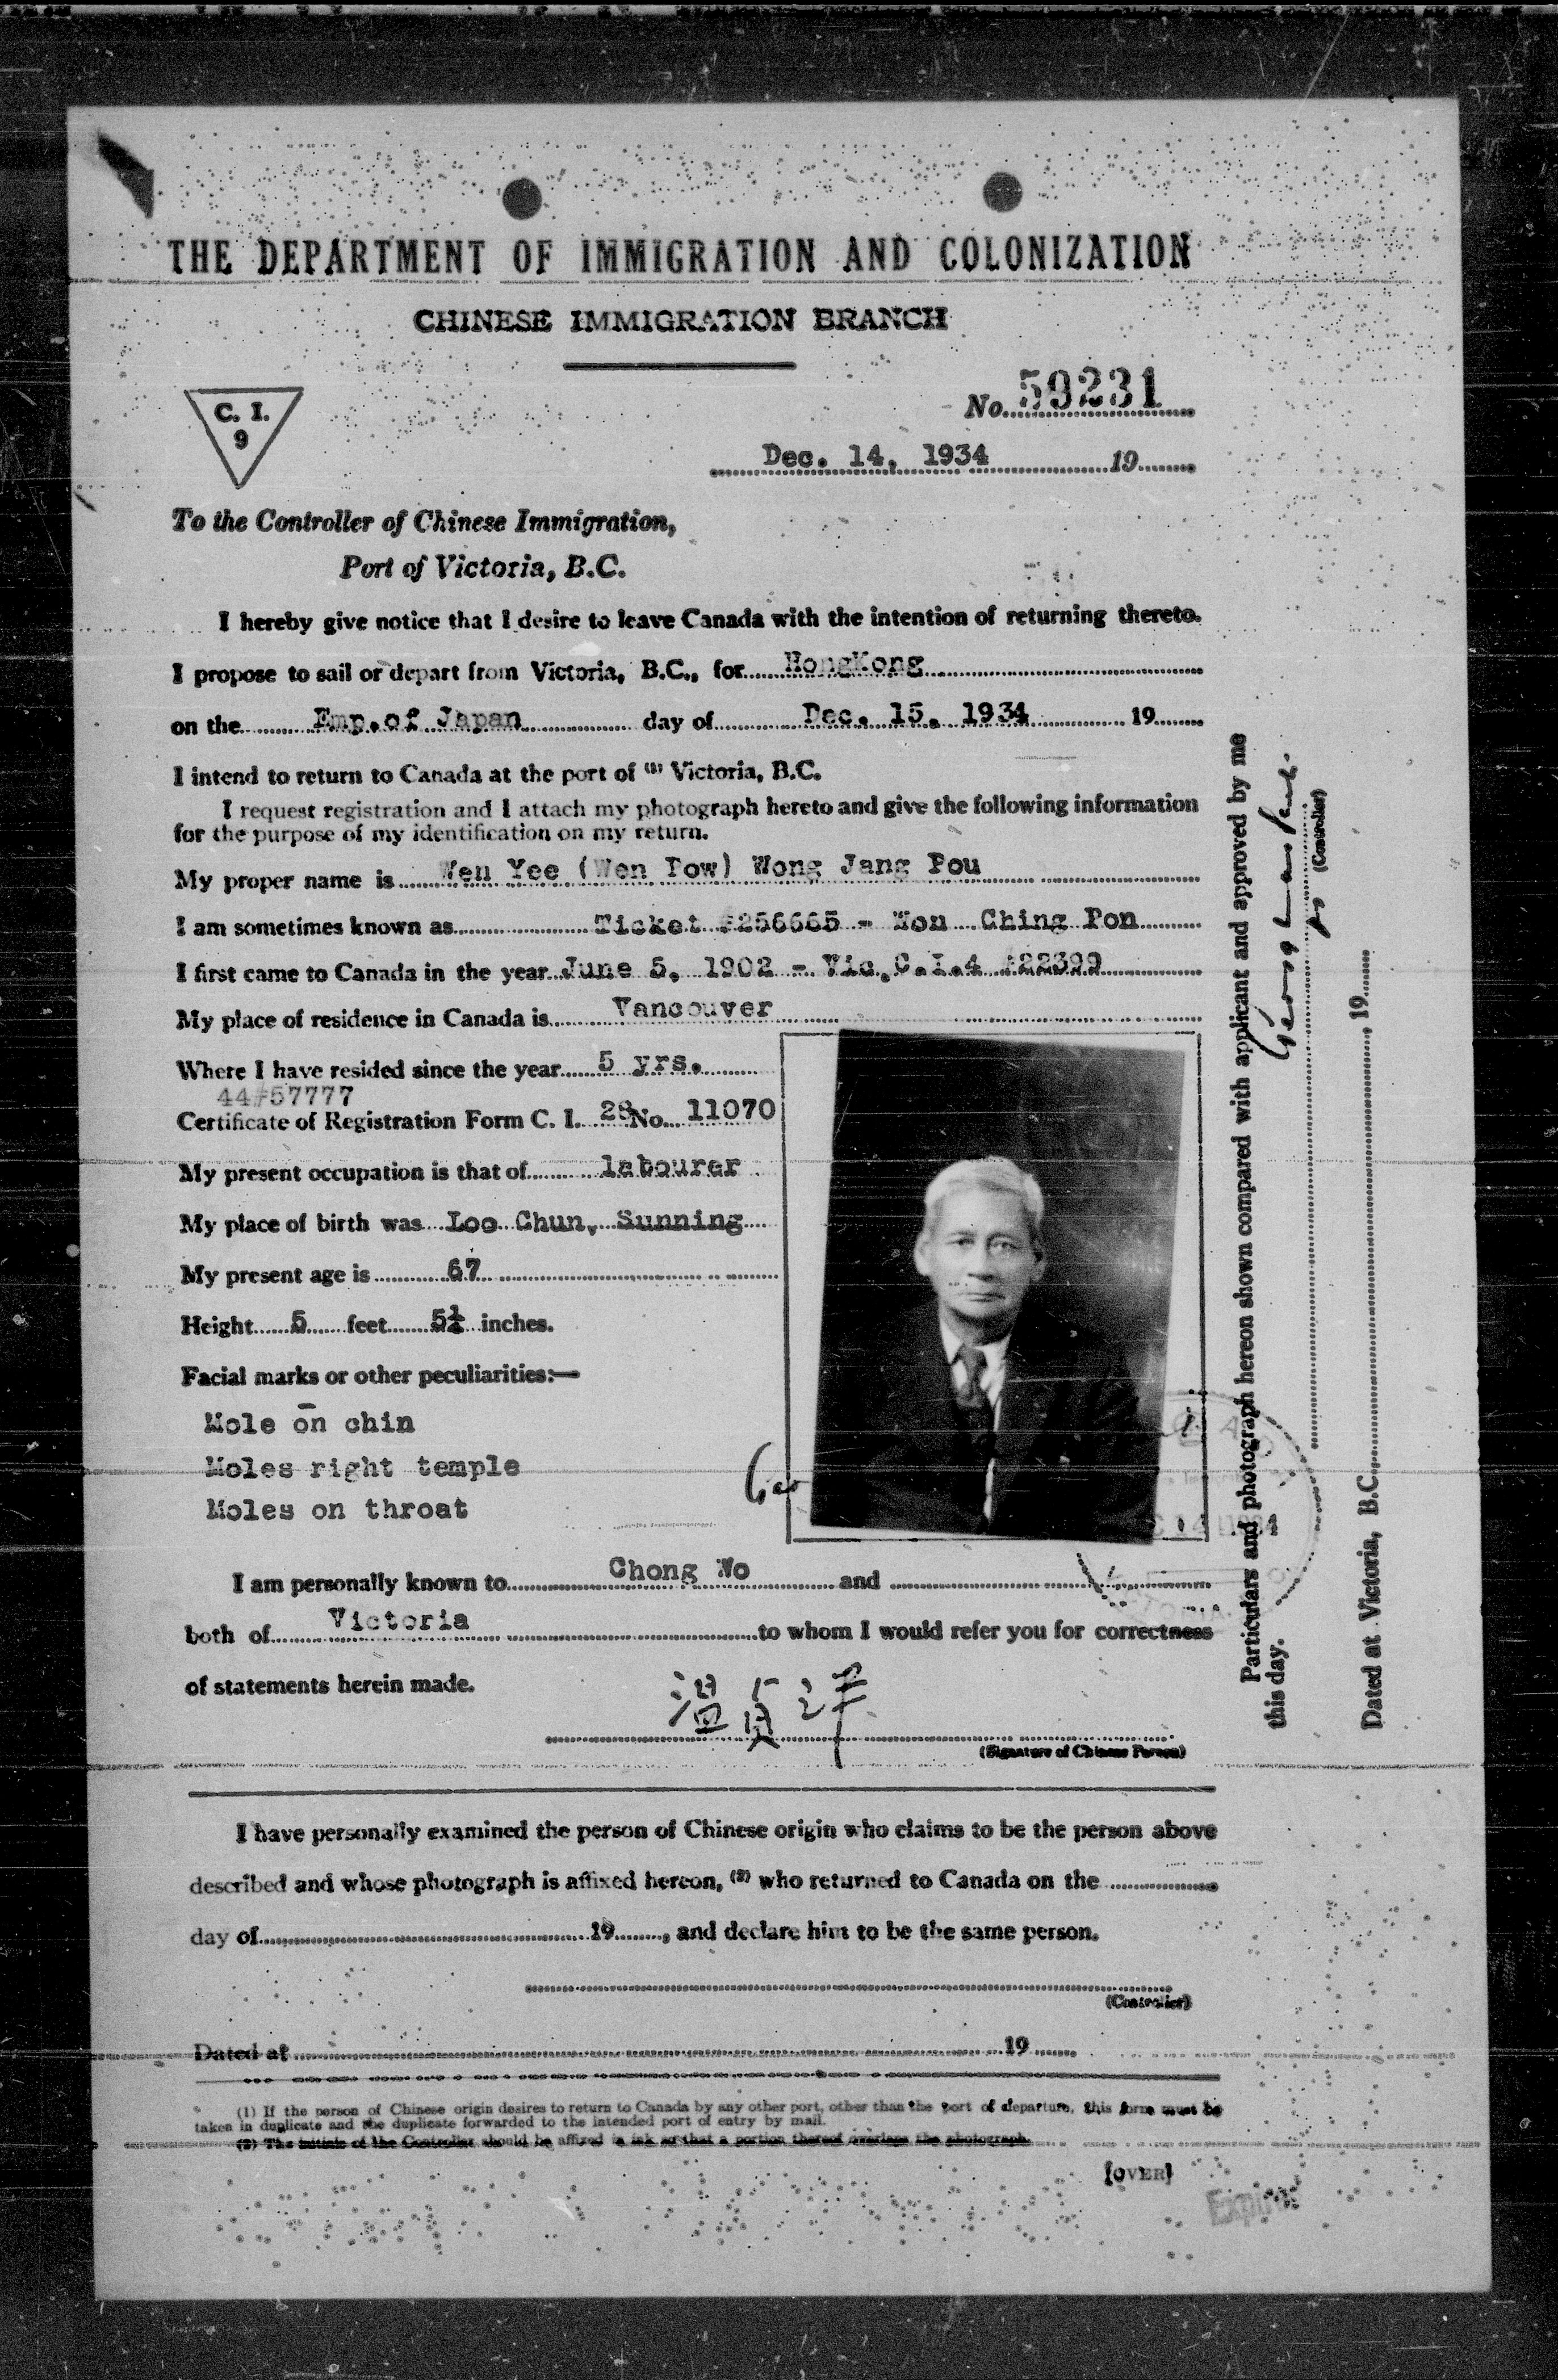 THE DEPARTMENT OF IMMIGRATION AND COLONIZATION
CHINESE IMMIGRATION BRANCH
C. I.
9
No. 59231
Dec. 14, 1934 19
To the Controller of Chinese Immigration,
Port of Victoria, B.C.
I hereby give notice that I desire to leave Canada with the intention of returning thereto.
I propose to sail or depart from Victoria, B.C., for HongKong
on the Emp. of Japan day of Dec. 15, 1934 19
I intend to return to Canada at the port of (1) Victoria, B.C.
I request registration and I attach my photograph hereto and give the following information
for the purpose of my identification on my return.
My proper name is Wen Yee (Wen Pow) Wong Jang Pou
I am sometimes known as Ticket #256665 - Won Ching Pon
I first came to Canada in the year June 5, 1902 - Vic. C.I.4 #22399
My place of residence in Canada is Vancouver
Where I have resided since the year 5 yrs.
44#57777
Certificate of Registration Form C. I. 28 No. 11070
My present occupation is that of labourer
My place of birth was Loo Chun, Sunning
My present age is 67
Height 5 feet 5½ inches.
Facial marks or other peculiarities:—
Mole on chin
Moles right temple
Moles on throat
Geo
I am personally known to Chong Wo and
both of Victoria to whom I would refer you for correctness
of statements herein made.
(Signature of Chinese Person)
I have personally examined the person of Chinese origin who claims to be the person above
described and whose photograph is affixed hereon, (2) who returned to Canada on the
day of 19, and declare him to be the same person.
(Controller)
Dated at 19
(1) If the person of Chinese origin desires to return to Canada by any other port, other than the port of departure, this form must be
taken in duplicate and the duplicate forwarded to the intended port of entry by mail.
(2) The initials of the Controller should be affixed in ink so that a portion thereof overlaps the photograph.
[OVER]
Particulars and photograph hereon shown compared with applicant and approved by me
this day.
George
(Controller)
Dated at Victoria, B.C. , 19